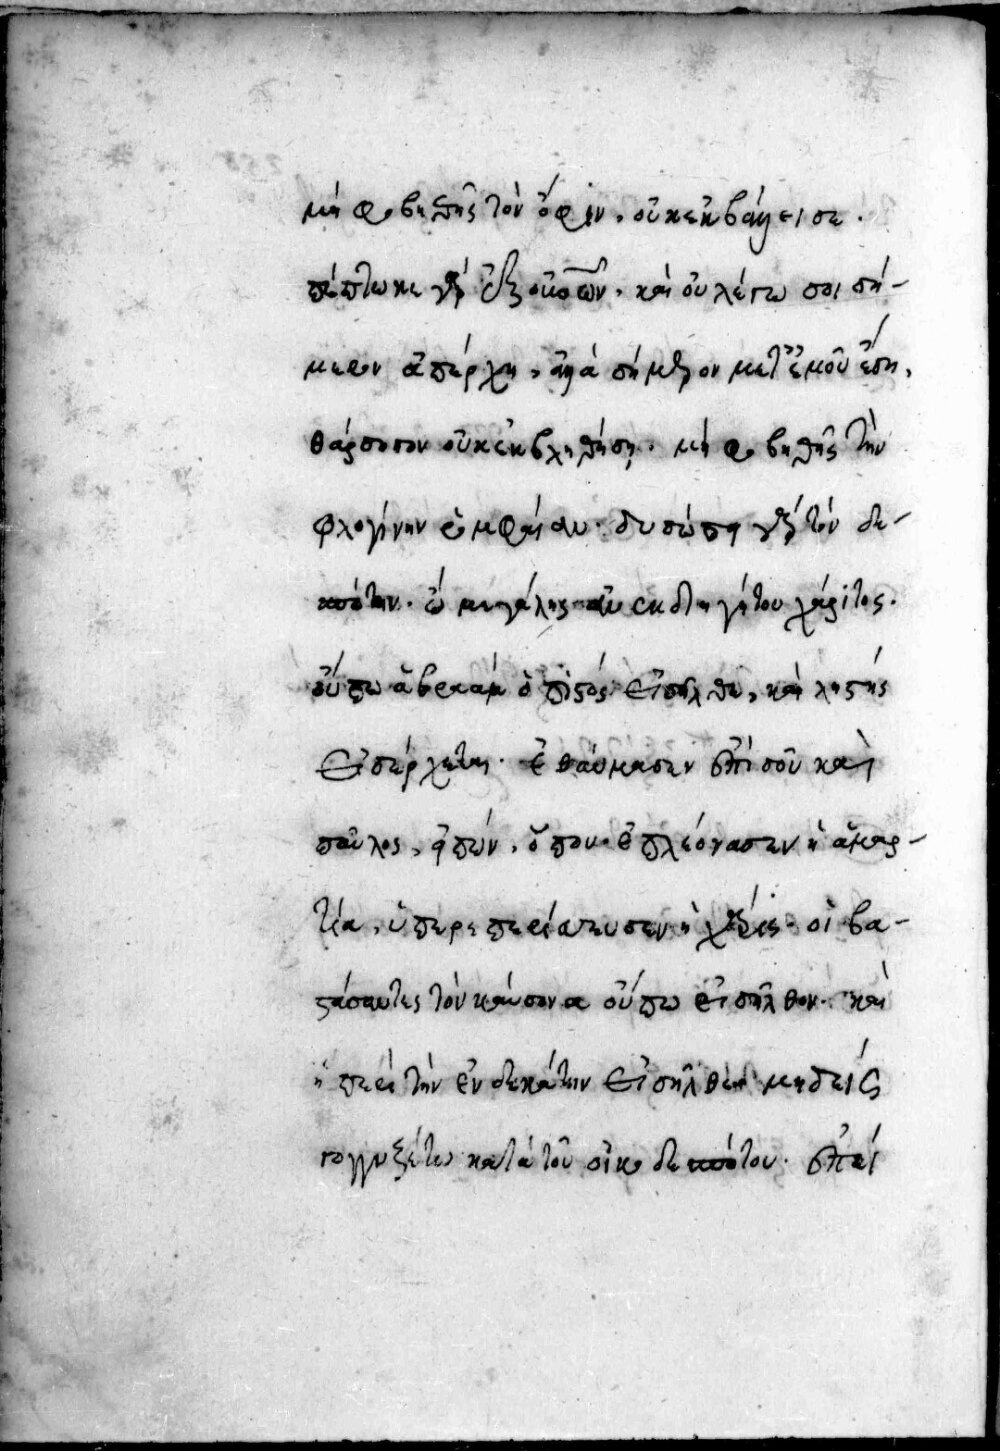 μὴ φοβηθῆς τὸν ὄφιν, οὐκ ἐκβάλλει σε.
πέπτωκε γὰρ ἐξ οὐρανῶν. καὶ οὐ λέγω σοι σή-
μερον ἀπέρχη, ἀλλὰ σήμερον μετ' ἐμοῦ ἔση,
θάρσησον οὐκ ἐκβληθήση. μὴ φοβηθῆς τὴν
φλογίνην ῥομφαίαν. δυσωπῆ γὰρ τὸν δε-
σπότην. ὢ μεγάλης καὶ ἀνεκδιηγήτου χάριτος.
οὔπω ἀβραὰμ ὁ πιστὸς εἰσῆλθε, καὶ ληστὴς
εἰσέρχεται. ἐθαύμασεν ἐπὶ σοῦ καὶ
παῦλος, εἰπών, ὅπου ἐπλεόνασεν ἡ ἁμαρ-
τία, ὑπερεπερίσσευσεν ἡ χάρις. οἱ βα-
στάσαντες τὸν καύσωνα οὔπω εἰσῆλθον. καὶ
ὁ περὶ τὴν ἑνδεκάτην εἰσῆλθεν μηδεὶς
γογγυζέτω κατὰ τοῦ οἰκοδεσπότου. ἐπεὶ